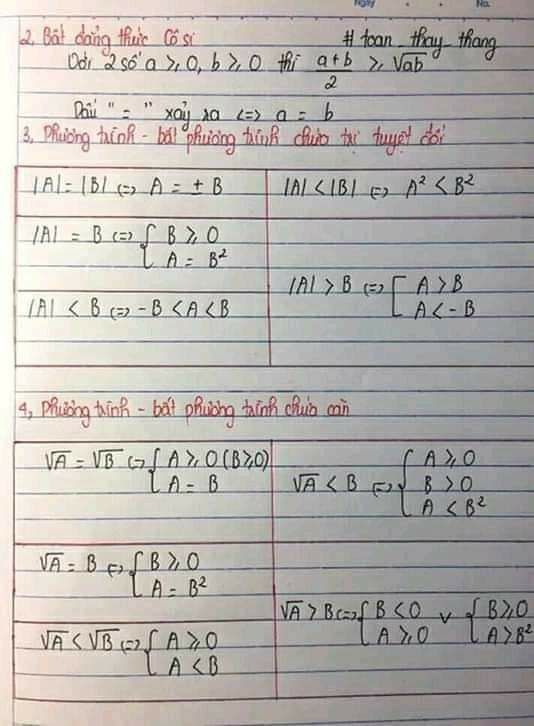 Ngày No.
2, Bất đẳng thức Cô si # toan_thay_thang
Với 2 số a ⩾ 0, b ⩾ 0 thì (a+b)/2 ⩾ √ab
Dấu "=" xảy ra <=> a = b
3, Phương trình - bất phương trình chứa trị tuyệt đối
|A| = |B| <=> A = ± B
|A| < |B| <=> A² < B²
|A| = B <=> { B ⩾ 0
A = B²
|A| < B <=> -B < A < B
|A| > B <=> [ A > B
A < -B
4, Phương trình - bất phương trình chứa căn
√A = √B <=> { A ⩾ 0 (B ⩾ 0)
A = B
√A < B <=> { A ⩾ 0
B > 0
A < B²
√A = B <=> { B ⩾ 0
A = B²
√A < √B <=> { A ⩾ 0
A < B
√A > B <=> { B < 0 v { B ⩾ 0
A ⩾ 0 A > B²